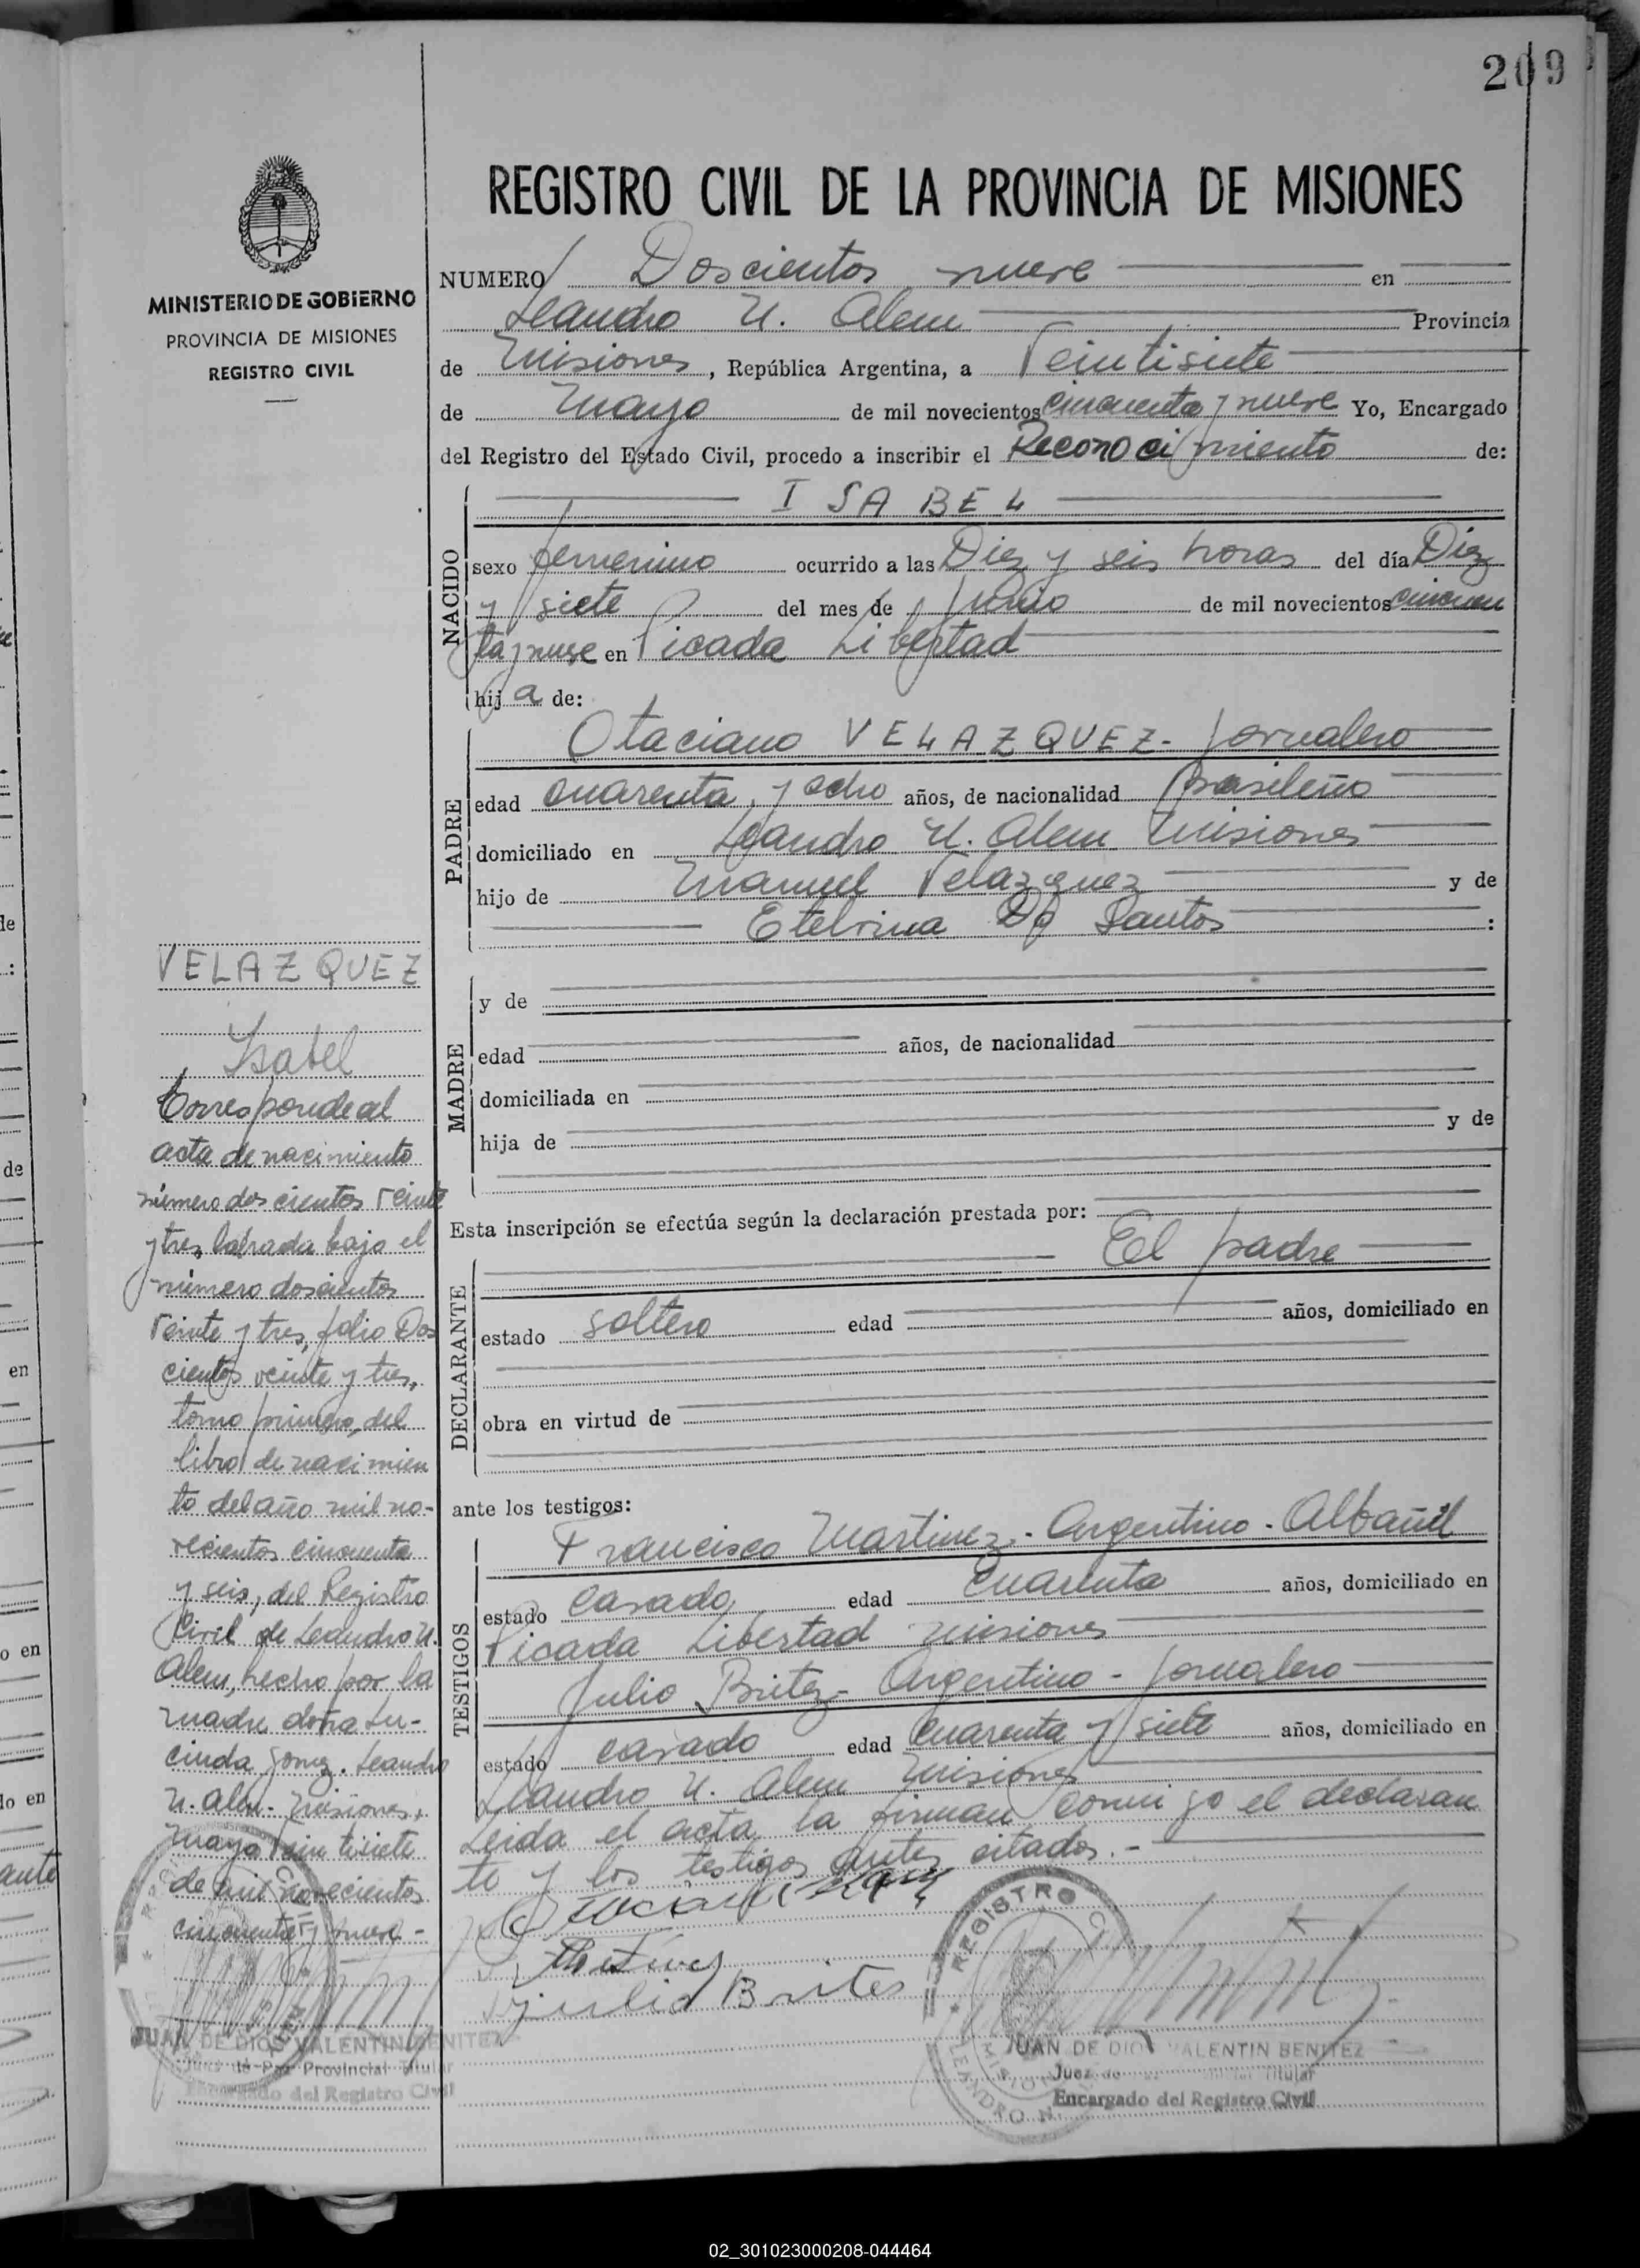 209
MINISTERIO DE GOBIERNO
PROVINCIA DE MISIONES
REGISTRO CIVIL
REGISTRO CIVIL DE LA PROVINCIA DE MISIONES
NUMERO Doscientos nueve en
Leandro N. Alem Provincia
de Misiones, República Argentina, a Veintisiete
de Mayo de mil novecientos cincuenta y nueve Yo, Encargado
del Registro del Estado Civil, procedo a inscribir el Reconocimiento de:
NACIDO
ISABEL
sexo femenino ocurrido a las Diez y seis horas del día Diez
y siete del mes de de mil novecientos cincuen
ta y nueve en Picada Libertad
hija de:
PADRE
Otaciano VELAZQUEZ - Jornalero
edad cuarenta y ocho años, de nacionalidad Brasileño
domiciliado en Leandro N. Alem Misiones
hijo de Manuel Velazquez y de
Etelvina Do Santos :
MADRE
y de
edad años, de nacionalidad
domiciliada en
hija de y de
Esta inscripción se efectúa según la declaración prestada por:
El padre
DECLARANTE
estado soltero edad años, domiciliado en
obra en virtud de
ante los testigos:
TESTIGOS
Francisco Martinez - Argentino - Albañil
estado Casado edad cuarenta años, domiciliado en
Picada Libertad misiones
Julio Britez - Argentino - Jornalero
estado casado edad cuarenta y siete años, domiciliado en
Leandro N. Alem Misiones
Leida el acta la firman conmigo el declaran
te y los testigos antes citados.-
Julio Brites
REGISTRO CIVIL
MISIONES
LEANDRO N.
JUAN DE DIOS VALENTIN BENITEZ
Juez de Titular
Encargado del Registro Civil
VELAZQUEZ
Ysabel
Corresponde al
acta de nacimiento
número doscientos veinte
y tres, labrada bajo el
número doscientos
veinte y tres, folio Dos
cientos veinte y tres,
tomo primero, del
libro de nacimien
to del año mil no-
vecientos cincuenta
y seis, del Registro
Civil de Leandro N.
Alem, hecho por la
madre doña Lu-
cinda Gomez. Leandro
N. Alem - Misiones,
mayo veintisiete
de mil novecientos
cincuenta y nueve -
JUAN DE DIOS VALENTIN BENITEZ
Juez de Paz Provincial Titular
Encargado del Registro Civil
de
:
de
en
o en
lo en
02_301023000208-044464